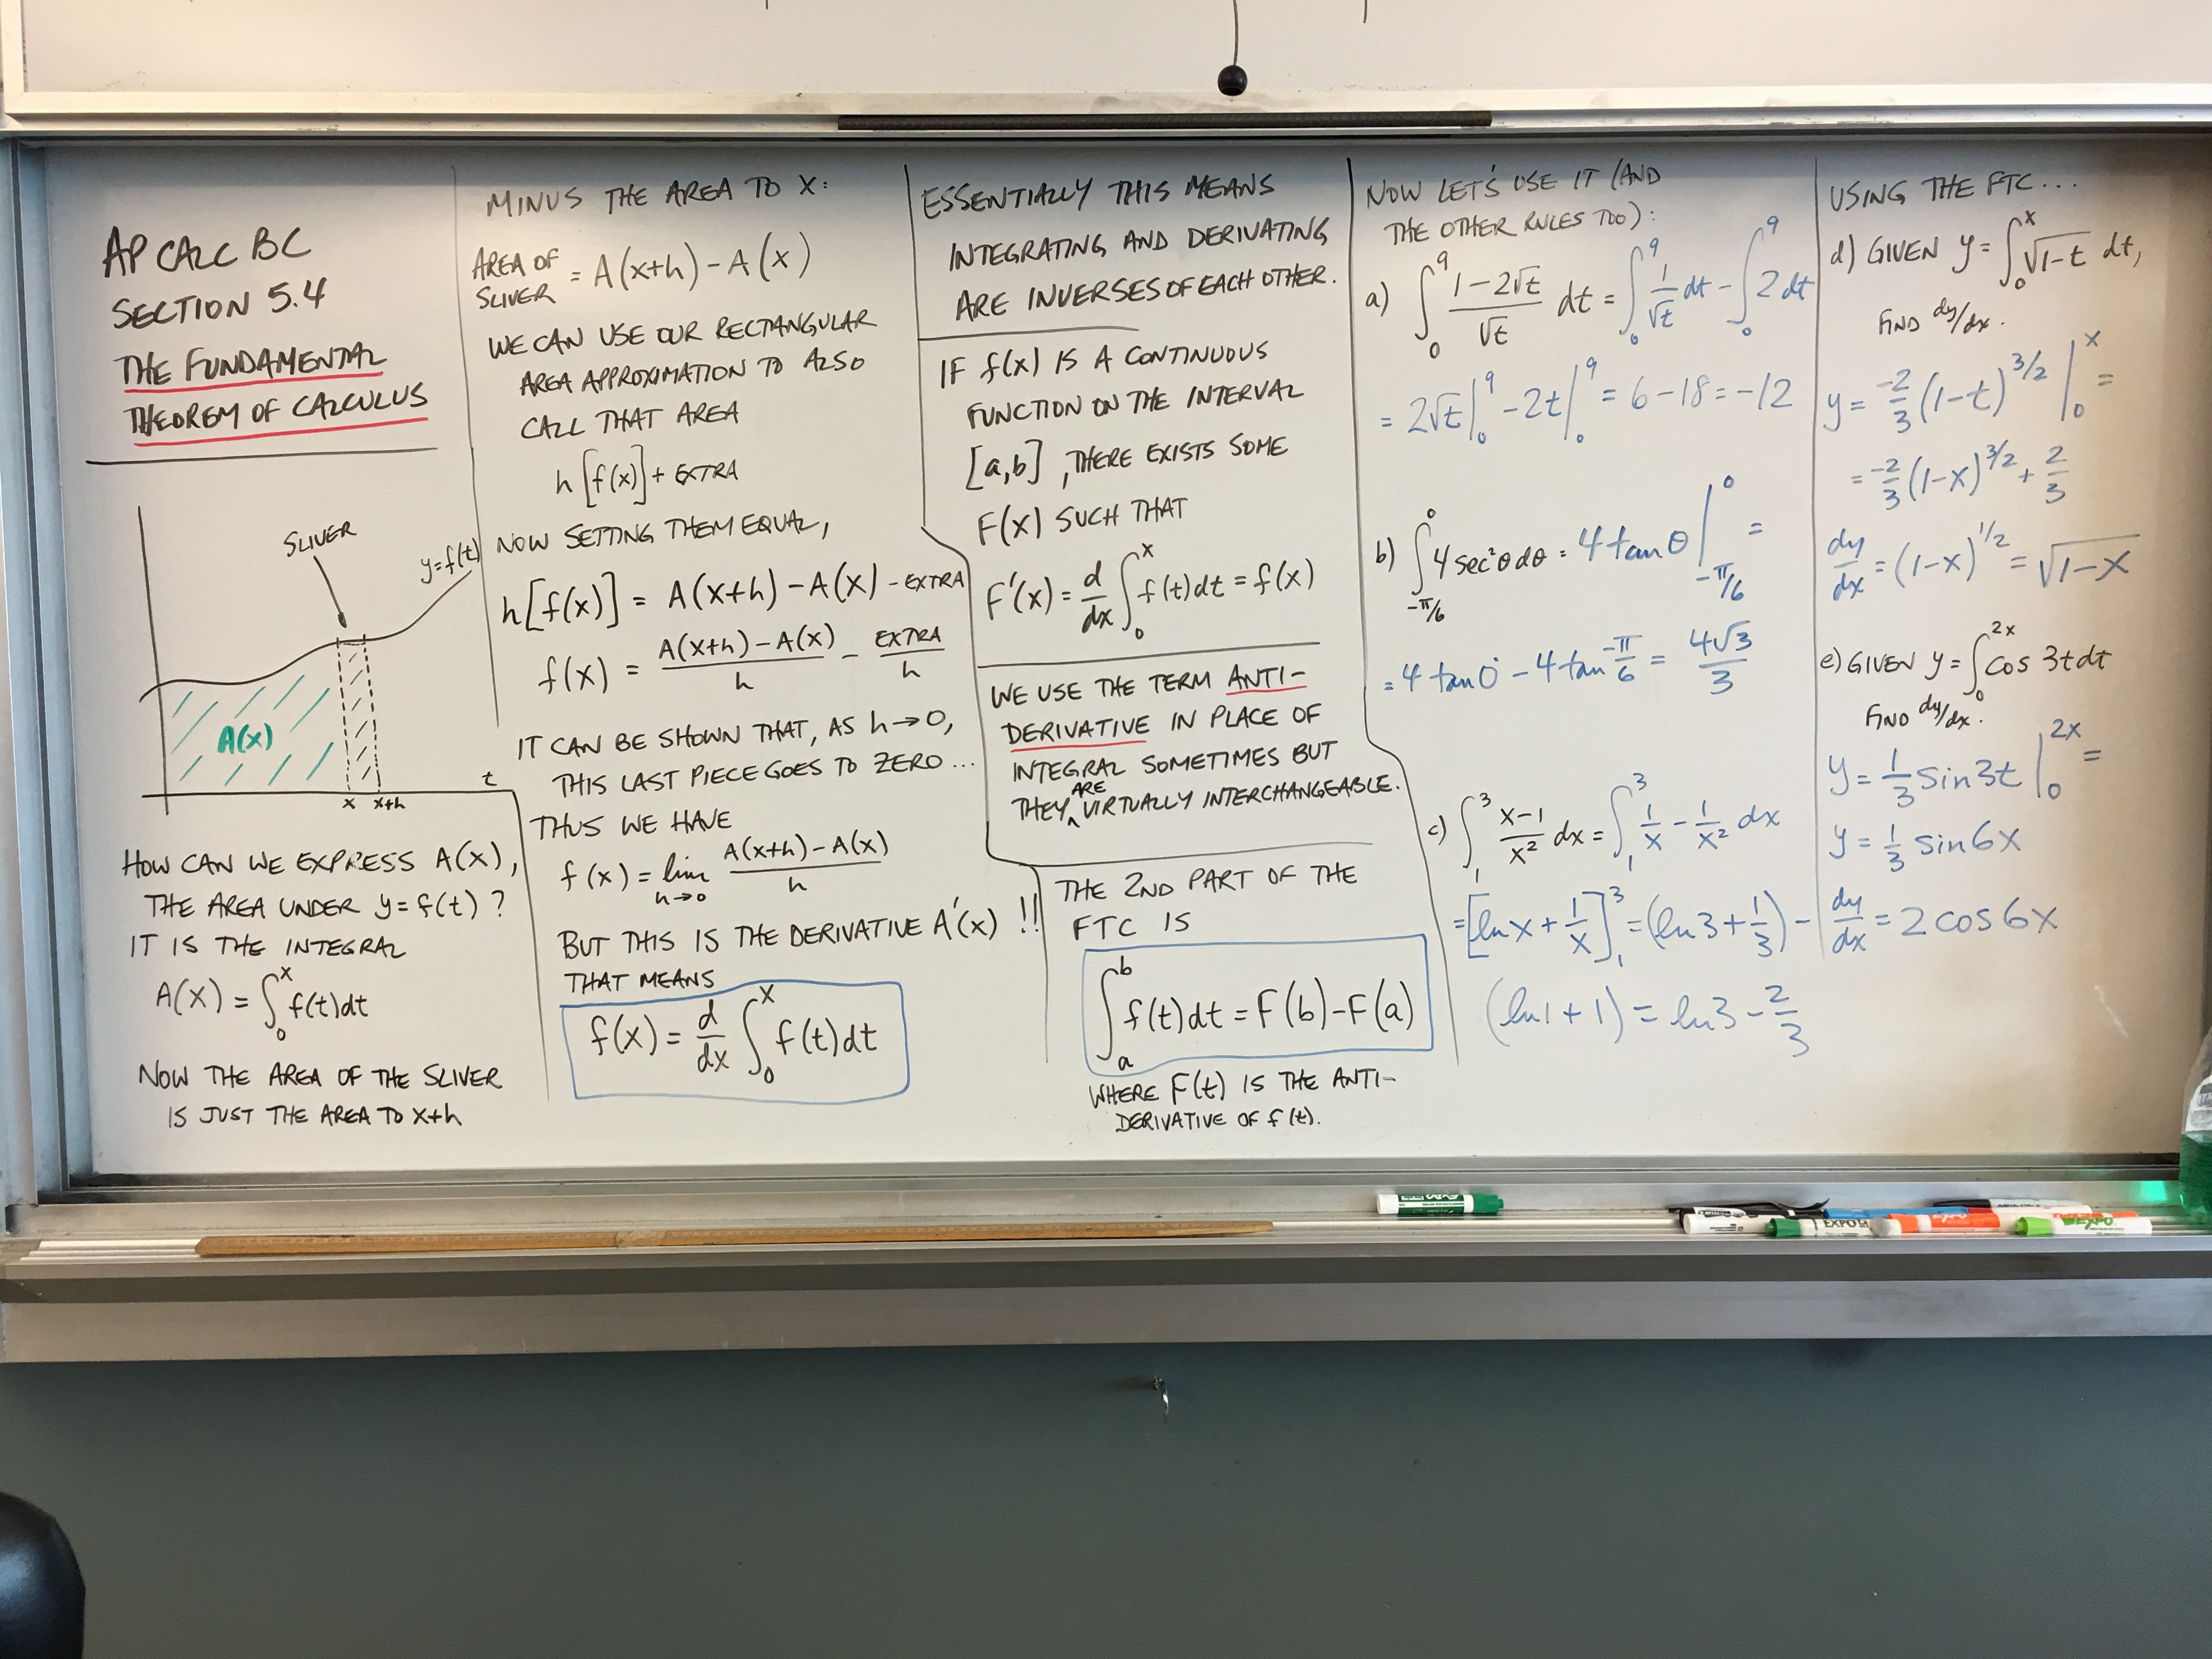 AP CALC BC
SECTION 5.4
THE FUNDAMENTAL
THEOREM OF CALCULUS
SLIVER
y=f(t)
A(x)
t
x x+h
HOW CAN WE EXPRESS A(x),
THE AREA UNDER y=f(t)?
IT IS THE INTEGRAL
A(x) = ∫₀ˣ f(t)dt
NOW THE AREA OF THE SLIVER
IS JUST THE AREA TO x+h
MINUS THE AREA TO X:
AREA OF SLIVER = A(x+h) - A(x)
WE CAN USE OUR RECTANGULAR
AREA APPROXIMATION TO ALSO
CALL THAT AREA
h[f(x)] + EXTRA
NOW SETTING THEM EQUAL,
h[f(x)] = A(x+h) - A(x) - EXTRA
f(x) = (A(x+h) - A(x))/h - EXTRA/h
IT CAN BE SHOWN THAT, AS h→0,
THIS LAST PIECE GOES TO ZERO...
THUS WE HAVE
f(x) = lim h→0 (A(x+h) - A(x))/h
BUT THIS IS THE DERIVATIVE A'(x) !!
THAT MEANS
f(x) = d/dx ∫₀ˣ f(t)dt
ESSENTIALLY THIS MEANS
INTEGRATING AND DERIVATING
ARE INVERSES OF EACH OTHER.
IF f(x) IS A CONTINUOUS
FUNCTION ON THE INTERVAL
[a,b], THERE EXISTS SOME
F(x) SUCH THAT
F'(x) = d/dx ∫₀ˣ f(t)dt = f(x)
WE USE THE TERM ANTI-
DERIVATIVE IN PLACE OF
INTEGRAL SOMETIMES BUT
THEY ^ARE VIRTUALLY INTERCHANGEABLE.
THE 2ND PART OF THE
FTC IS
∫ₐᵇ f(t)dt = F(b) - F(a)
WHERE F(t) IS THE ANTI-
DERIVATIVE OF f(t).
NOW LET'S USE IT (AND
THE OTHER RULES TOO):
a) ∫₀⁹ (1-2√t)/√t dt = ∫₀⁹ 1/√t dt - ∫₀⁹ 2 dt
= 2√t|₀⁹ - 2t|₀⁹ = 6-18 = -12
b) ∫_{-π/6}^0 4 sec²θ dθ = 4 tan θ |_{-π/6}^0 =
= 4 tan 0 - 4 tan -π/6 = 4√3/3
c) ∫₁³ (x-1)/x² dx = ∫₁³ 1/x - 1/x² dx
= [ln x + 1/x]₁³ = (ln 3 + 1/3) -
(ln 1 + 1) = ln 3 - 2/3
USING THE FTC...
d) GIVEN y = ∫₀ˣ √(1-t) dt,
FIND dy/dx.
y = -2/3 (1-t)^{3/2} |₀ˣ =
= -2/3 (1-x)^{3/2} + 2/3
dy/dx = (1-x)^{1/2} = √(1-x)
e) GIVEN y = ∫₀^{2x} cos 3t dt
FIND dy/dx.
y = 1/3 sin 3t |₀^{2x} =
y = 1/3 sin 6x
dy/dx = 2 cos 6x
EXPO
EXPO